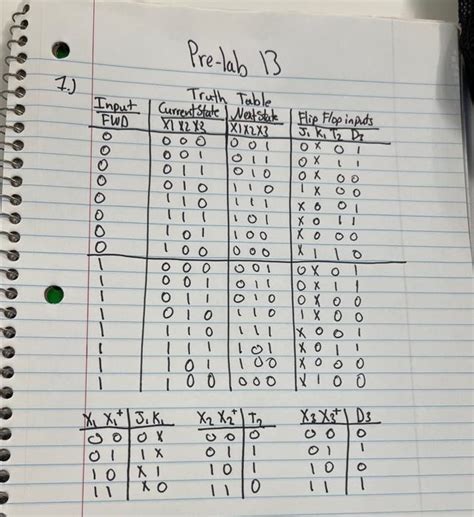 Pre-lab 13
1.)
Truth Table
Input Current State Next State Flip Flop inputs
FWD X1 X2 X3 X1 X2 X3 J1 K1 T2 D3
0 0 0 0 0 0 1 0 X 0 1
0 0 0 1 0 1 1 0 X 1 1
0 0 1 1 0 1 0 0 X 0 0
0 0 1 0 1 1 0 1 X 0 0
0 1 1 0 1 1 1 X 0 0 1
0 1 1 1 1 0 1 X 0 1 1
0 1 0 1 1 0 0 X 0 0 0
0 1 0 0 0 0 0 X 1 1 0
1 0 0 0 0 0 1 0 X 0 1
1 0 0 1 0 1 1 0 X 1 1
1 0 1 1 0 1 0 0 X 0 0
1 0 1 0 1 1 0 1 X 0 0
1 1 1 0 1 1 1 X 0 0 1
1 1 1 1 1 0 1 X 0 1 1
1 1 0 1 1 0 0 X 0 0 0
1 1 0 0 0 0 0 X 1 0 0
X1 X1+ J1 K1 X2 X2+ T2 X3 X3+ D3
0 0 0 X 0 0 0 0 0 0
0 1 1 X 0 1 1 0 1 1
1 0 X 1 1 0 1 1 0 0
1 1 X 0 1 1 0 1 1 1